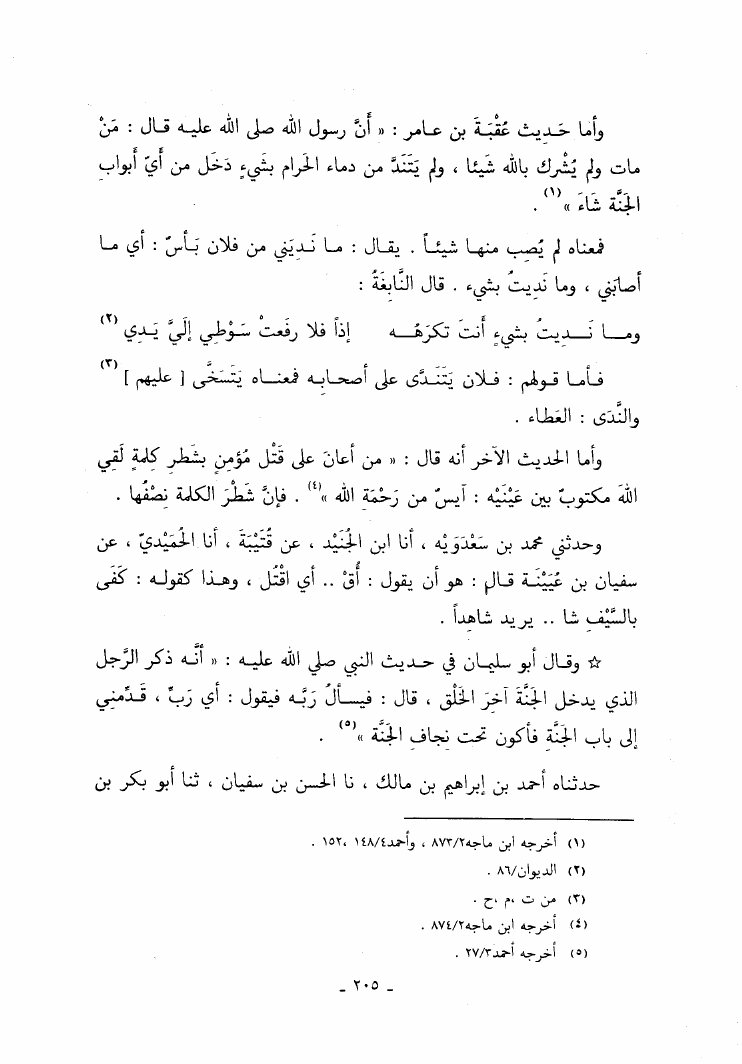 وأما حَديث عُقْبَةَ بن عامر : « أَنَّ رسول الله صلى الله عليه قال : مَنْ
مات ولم يُشْرك بالله شَيئا ، ولم يَتَنَدَّ من دماء الحَرام بشَيءٍ دَخَل من أَيّ أَبواب
الجَنَّة شَاءَ »(١) .
فمعناه لم يُصِب منها شيئاً . يقال : ما نَديَني من فلان بَأسٌ : أي ما
أصابَني ، وما نَديتُ بشَيء . قال النَّابغَةُ :
وما نَديتُ بشَيءٍ أَنتَ تكرَهُه إذاً فلا رفَعتْ سَوْطي إلَيَّ يَدي (٢)
فأما قولهم : فلان يَتَنَدَّى على أصحابه فمعناه يَتَسَخَّى [ عليهم ] (٣)
والنَّدَى : العَطاء .
وأما الحَديث الآخر أنه قال : « من أعانَ على قَتْل مُؤمنٍ بشَطر كلمةٍ لَقي
اللهَ مكتوبٌ بين عَيْنَيْه : آيسٌ من رَحْمَة الله »(٤) . فإنَّ شَطْرَ الكلمة نصْفُها .
وحدثني محمد بن سَعْدَوَيْه ، أنا ابن الجُنَيْد ، عن قُتَيْبَةَ ، أنا الحُمَيْديّ ، عن
سفيان بن عُيَيْنَة قال : هو أن يقول : أُقْ .. أي اقْتُل ، وهذا كقوله : كَفَى
بالسَّيْف شا .. يريد شاهداً .
☆ وقال أبو سليمان في حديث النبي صلى الله عليه : « أنَّه ذكر الرَّجل
الذي يدخل الجَنَّة آخرَ الخَلْق ، قال : فيسألُ رَبَّه فيقول : أي رَبِّ ، قَدِّمني
إلى باب الجَنَّة فأكون تحت نِجاف الجَنَّة »(٥) .
حدثناه أحمد بن إبراهيم بن مالك ، نا الحسن بن سفيان ، ثنا أبو بكر بن
(١) أخرجه ابن ماجه٨٧٣/٢ ، وأحمد١٤٨/٤ ،١٥٢ .
(٢) الديوان/٨٦ .
(٣) من ت ،م ،ح .
(٤) أخرجه ابن ماجه٨٧٤/٢ .
(٥) أخرجه أحمد٢٧/٣ .
ـ ٢٠٥ ـ